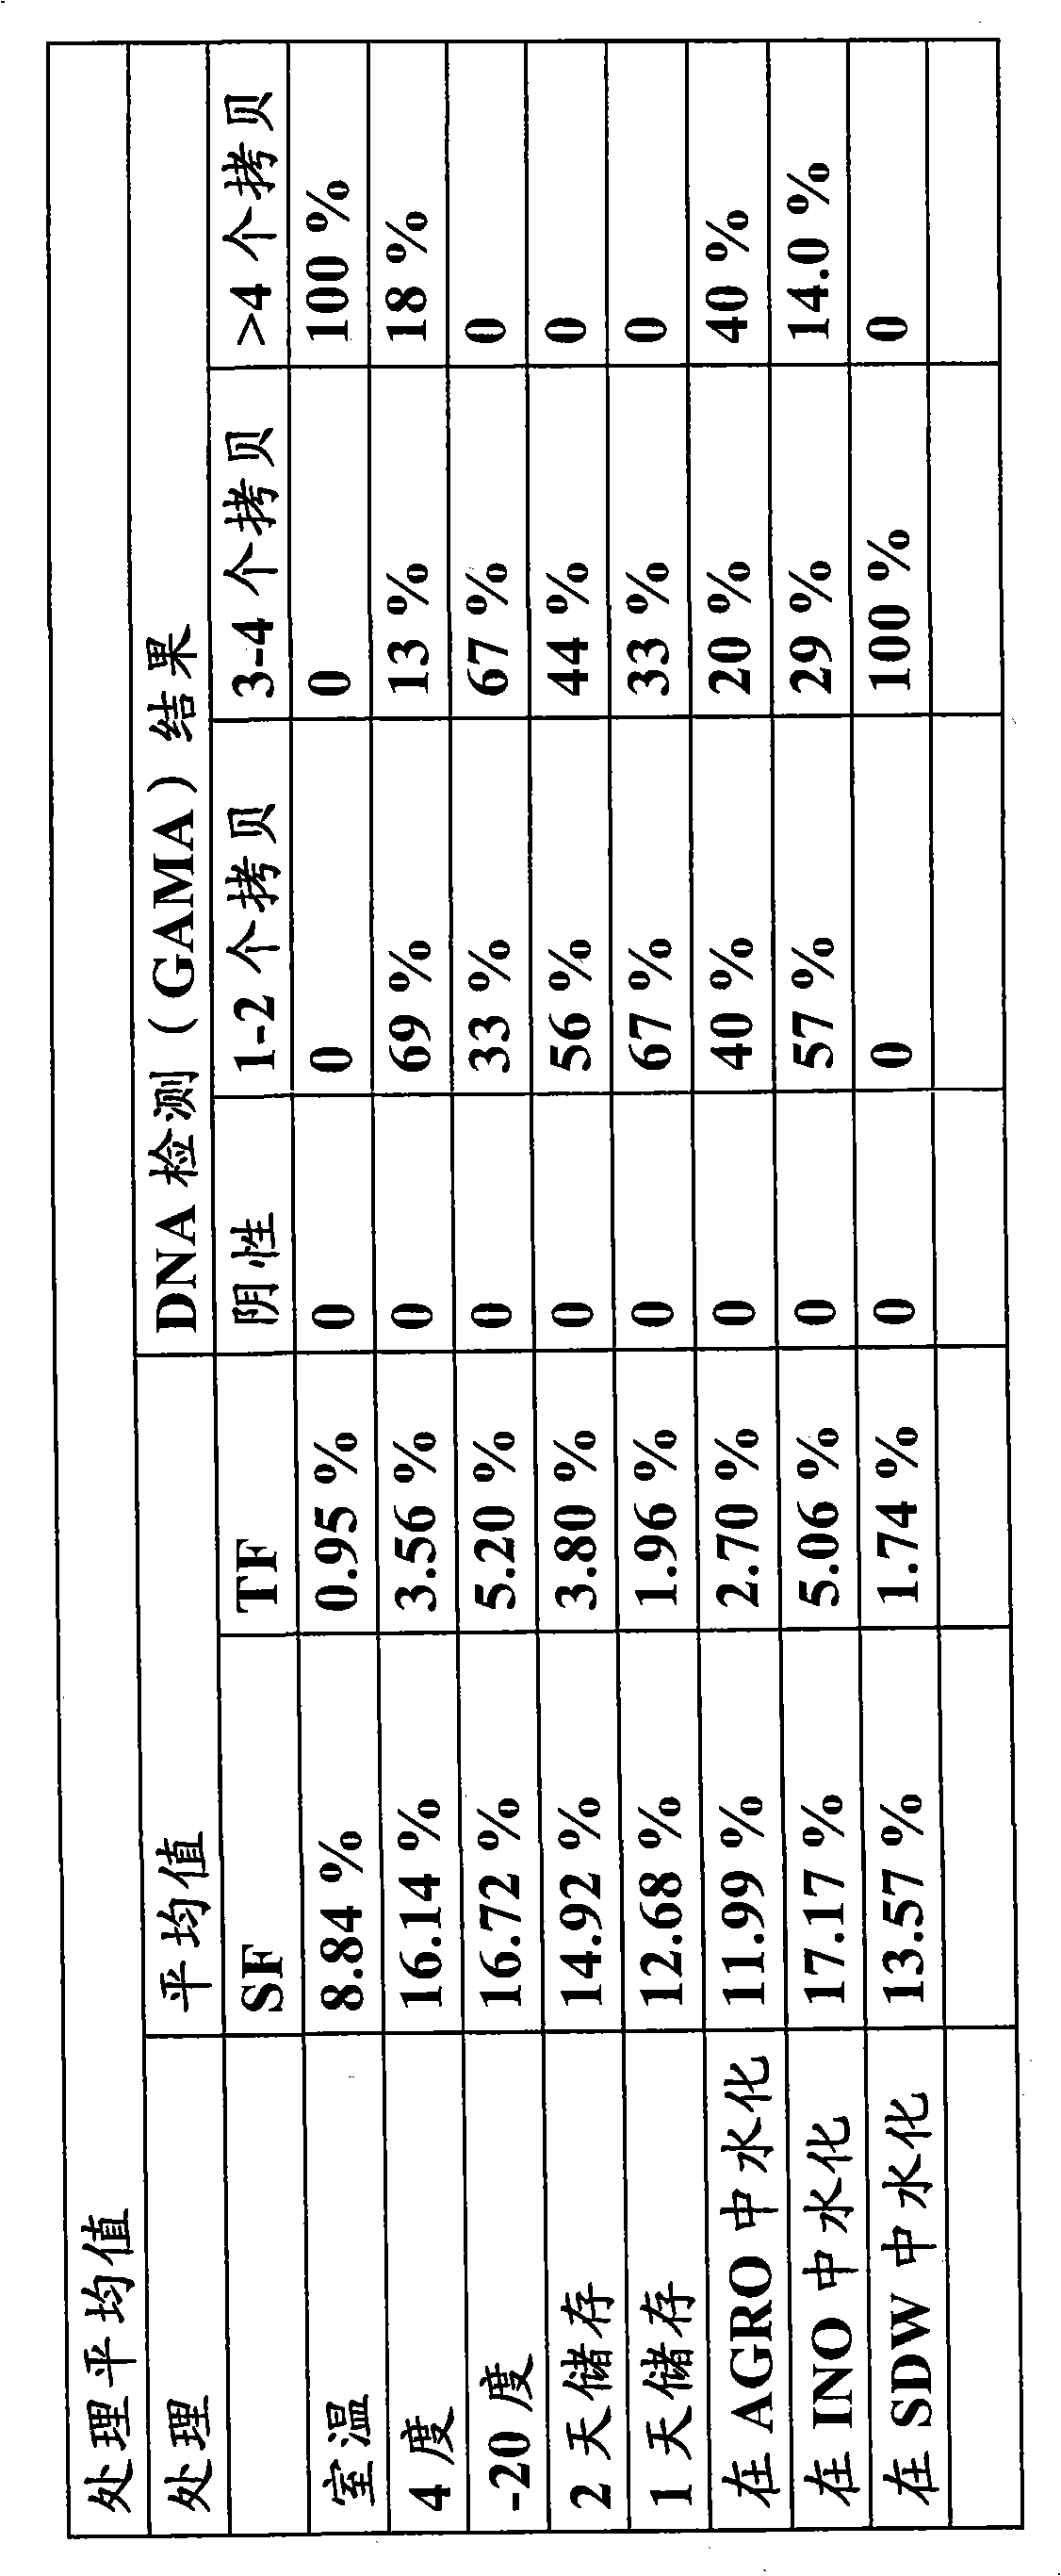 处理平均值
处理 平均值 DNA 检测（GAMA）结果
SF TF 阴性 1-2 个拷贝 3-4 个拷贝 >4 个拷贝
室温 8.84 % 0.95 % 0 0 0 100 %
4 度 16.14 % 3.56 % 0 69 % 13 % 18 %
-20 度 16.72 % 5.20 % 0 33 % 67 % 0
2 天储存 14.92 % 3.80 % 0 56 % 44 % 0
1 天储存 12.68 % 1.96 % 0 67 % 33 % 0
在 AGRO 中水化 11.99 % 2.70 % 0 40 % 20 % 40 %
在 INO 中水化 17.17 % 5.06 % 0 57 % 29 % 14.0 %
在 SDW 中水化 13.57 % 1.74 % 0 0 100 % 0